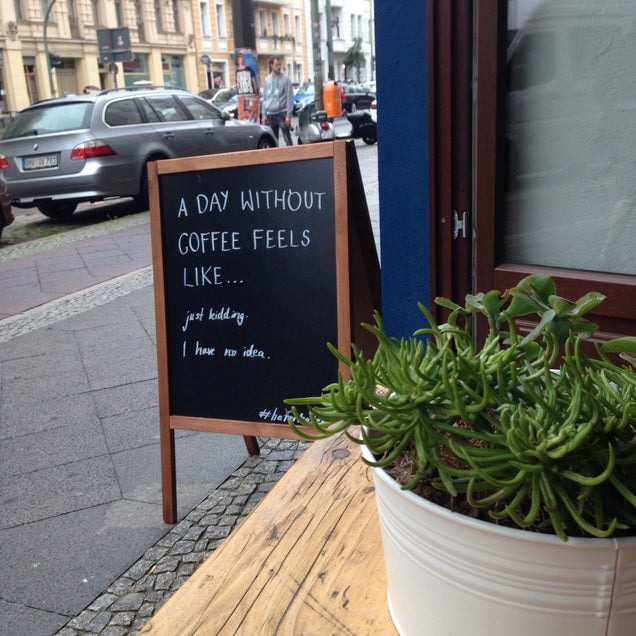 A DAY WITHOUT
COFFEE FEELS
LIKE...
just kidding.
I have no idea.